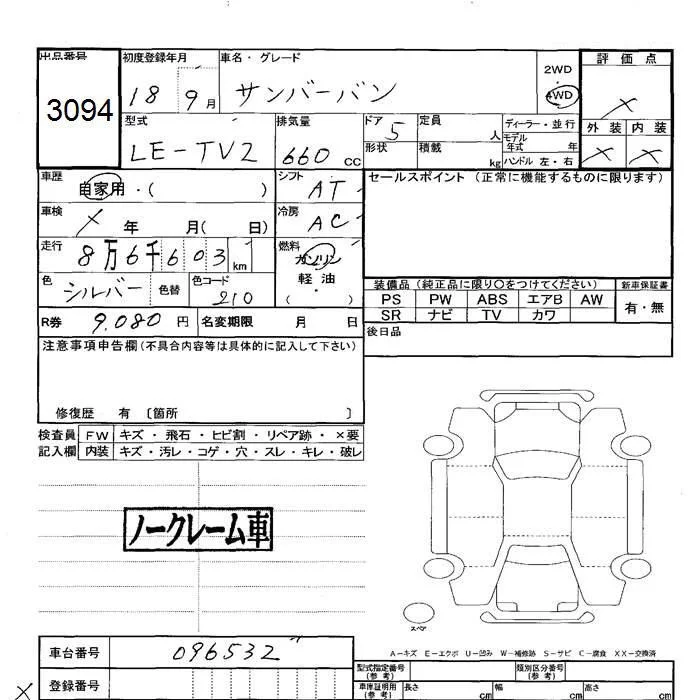 出品番号 初度登録年月 車名・グレード 2WD ・ 4WD 評価点
3094 18 9月 サンバーバン ×
型式 排気量 ドア 定員 ディーラー・並行 外装 内装
LE-TV2 660 CC 5 人 モデル年式 年 × ×
形状 積載 kg ハンドル 左・右
車歴 自家用・( ) シフト AT セールスポイント (正常に機能するものに限ります)
車検 × 年 月( 日) 冷房 AC
走行 8万6千603 km 燃料 ガソリン
軽油
( )
色 シルバー 色替 色コード 210
装備品(純正品に限り○をつけてください) 新車保証書
PS PW ABS エアB AW 有・無
SR ナビ TV カワ
R券 9,080 円 名変期限 月 日 後日品
注意事項申告欄(不具合内容等は具体的に記入して下さい)
修復歴 有 〔箇所 〕
検査員 FW キズ・飛石・ヒビ割・リペア跡・×要
記入欄 内装 キズ・汚レ・コゲ・穴・スレ・キレ・破レ
ノークレーム車
スペア
A-キズ E-エクボ U-凹み W-補修跡 S-サビ C-腐食 XX-交換済
車台番号 096532
型式指定番号(参考) 類別区分番号(参考)
× 登録番号 車庫証明用(参考) 長さ cm 幅 cm 高さ cm